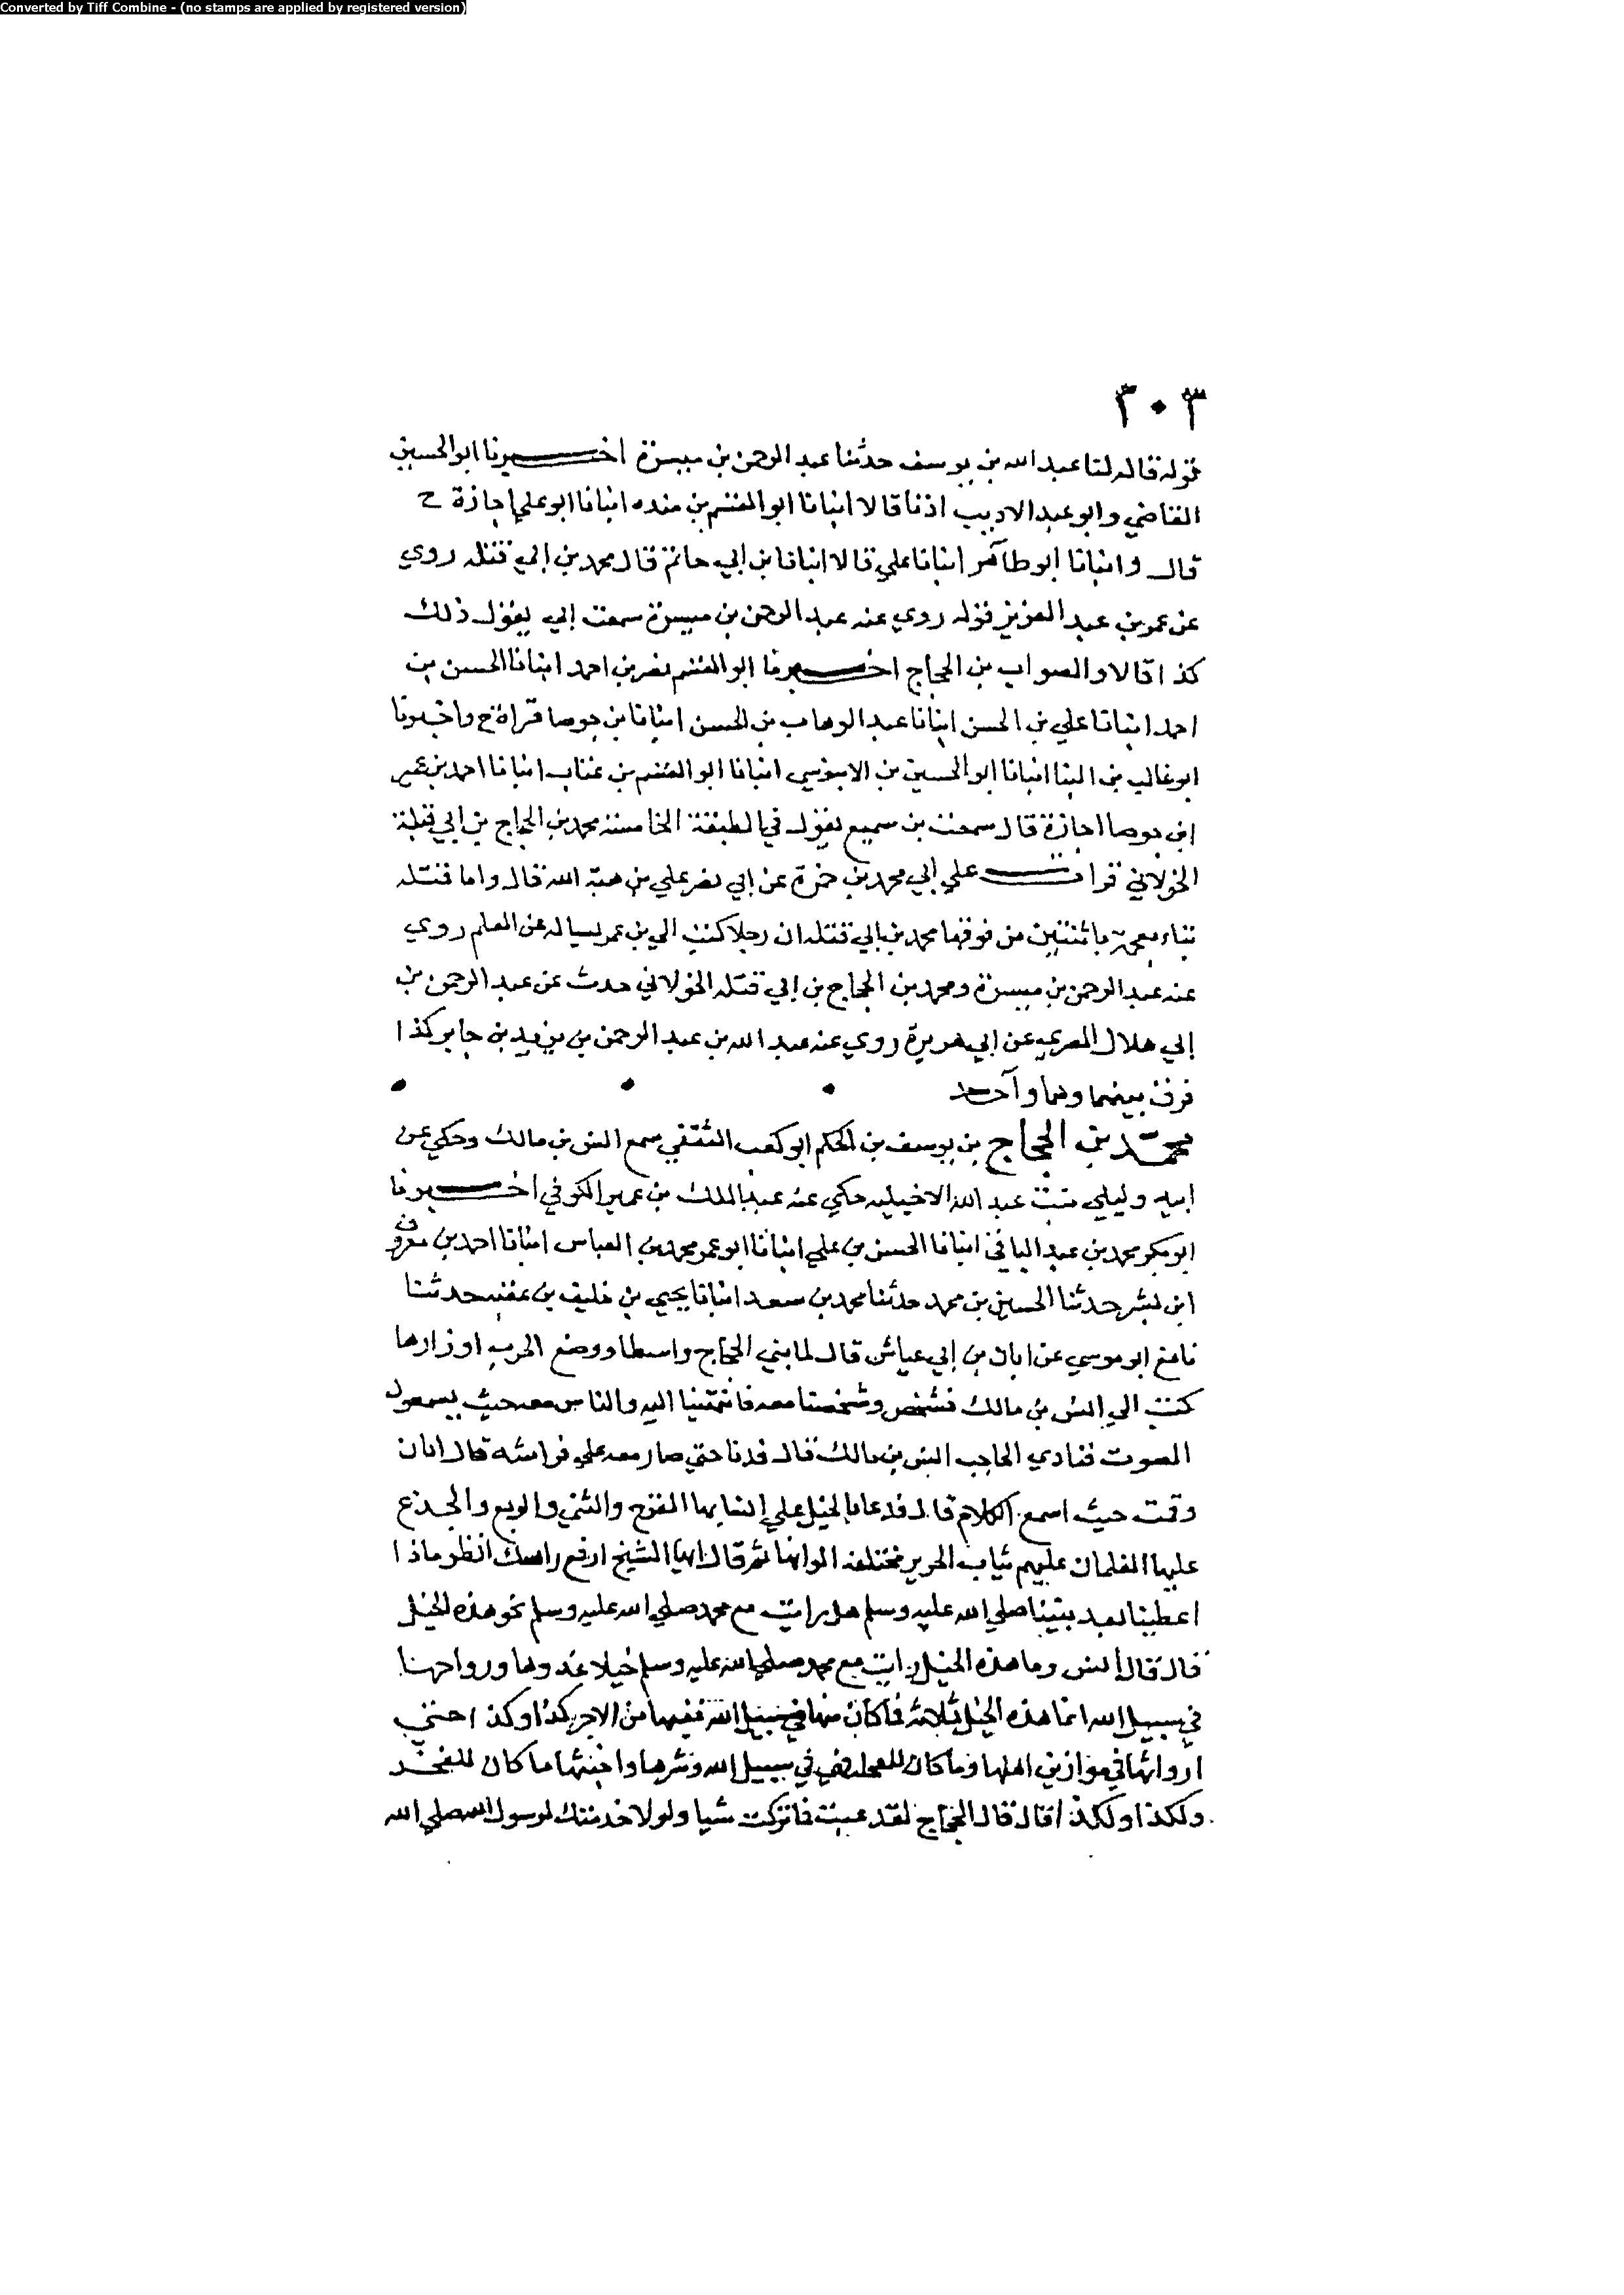 Converted by Tiff Combine - (no stamps are applied by registered version)
٣٠٣
قوله قاله لنا عبد الله بن يوسف حدثنا عبد الرحمن بن ميسرة اخبرنا ابو الحسين
القاضي وابو عبد الاديب اذنا قالا انبانا ابو القسم بن منده انبانا ابو علي اجازة ح
قال وانبانا ابو طاهر انبانا علي قالا انبانا بن ابي حاتم قال محمد بن ابي قتله روي
عن عمر بن عبد العزيز قوله روي عنه عبد الرحمن بن ميسرة سمعت ابي يقول ذلك
كذا قالا والصواب بن الحجاج اخبرنا ابو القسم نصر بن احمد انبانا الحسن بن
احمد انبانا علي بن الحسن انبانا عبد الوهاب بن الحسن انبانا بن جوصا قراة ح واخبرنا
ابو غالب بن البنا انبانا ابو الحسين بن الابنوسي انبانا ابو القسم بن عتاب انبانا احمد بن عمير
ابن جوصا اجازة قال سمعت بن سميع يقول في الطبقة الخامسة محمد بن الحجاج بن ابي قتلة
الخولاني قرات علي ابي محمد بن حمزة عن ابي نصر علي بن هبة الله قال واما قتله
بتاء معجمة باثنتين من فوقها محمد بن ابي قتله ان رجلا كتب الي بن عمر يساله عن العلم روي
عنه عبد الرحمن بن ميسرة ومحمد بن الحجاج بن ابي قتله الخولاني حدث عن عبد الرحمن بن
ابي هلال المصري عن ابي هريرة روي عنه عبد الله بن عبد الرحمن بن يزيد بن جابر كذا
فرق بينهما وهما واحد
محمد بن الحجاج بن يوسف بن الحكم ابو كعب الثقفي سمع انس بن مالك وحكي عن
ابيه وليلي بنت عبد الله الاخيليه حكي عنه عبد الملك بن عمير الكوفي اخبرنا
ابو بكر محمد بن عبد الباقي انبانا الحسن بن علي انبانا ابو عمر محمد بن العباس انبانا احمد بن معروف
ابن بشر حدثنا الحسين بن محمد حدثنا محمد بن سعد انبانا يحيي بن خليف بن عقبه حدثنا
نافع ابو موسي عن ابان بن ابي عياش قال لما بني الحجاج واسطا ووضع الحرب اوزارها
كتب الي انس بن مالك فشخص وشخصنا معه فانتهينا اليه والناس معه حيث يسمعون
الصوت فنادي الحاجب انس بن مالك قال فدنا حتي صار معه علي فراشه قال ابان
وقمت حيث اسمع الكلام قال فدعا بالخيل علي انسابها القرح والثني والربع والجذع
عليها الغلمان عليهم ثياب الحرير مختلفة الوانها ثم قال ايها الشيخ ارفع راسك انظر ماذا
اعطينا بعد نبينا صلي الله عليه وسلم هل رايت مع محمد صلي الله عليه وسلم نحو هذه الخيل
قال قال انس وما هذه الخيل رايت مع محمد صلي الله عليه وسلم خيلا غدوها ورواحها
في سبيل الله انما هذه الخيل ثلاثة فما كان منها في سبيل الله ففيها من الاجر كذا وكذا حتي
ارواثها في موازين اهلها وما كان للفحل في سبيل الله وشرها واخبثها ما كان للفخر
ولكذا ولكذا قال قال الحجاج لقد عبت فما تركت شيا ولولا خدمتك لرسول الله صلي الله